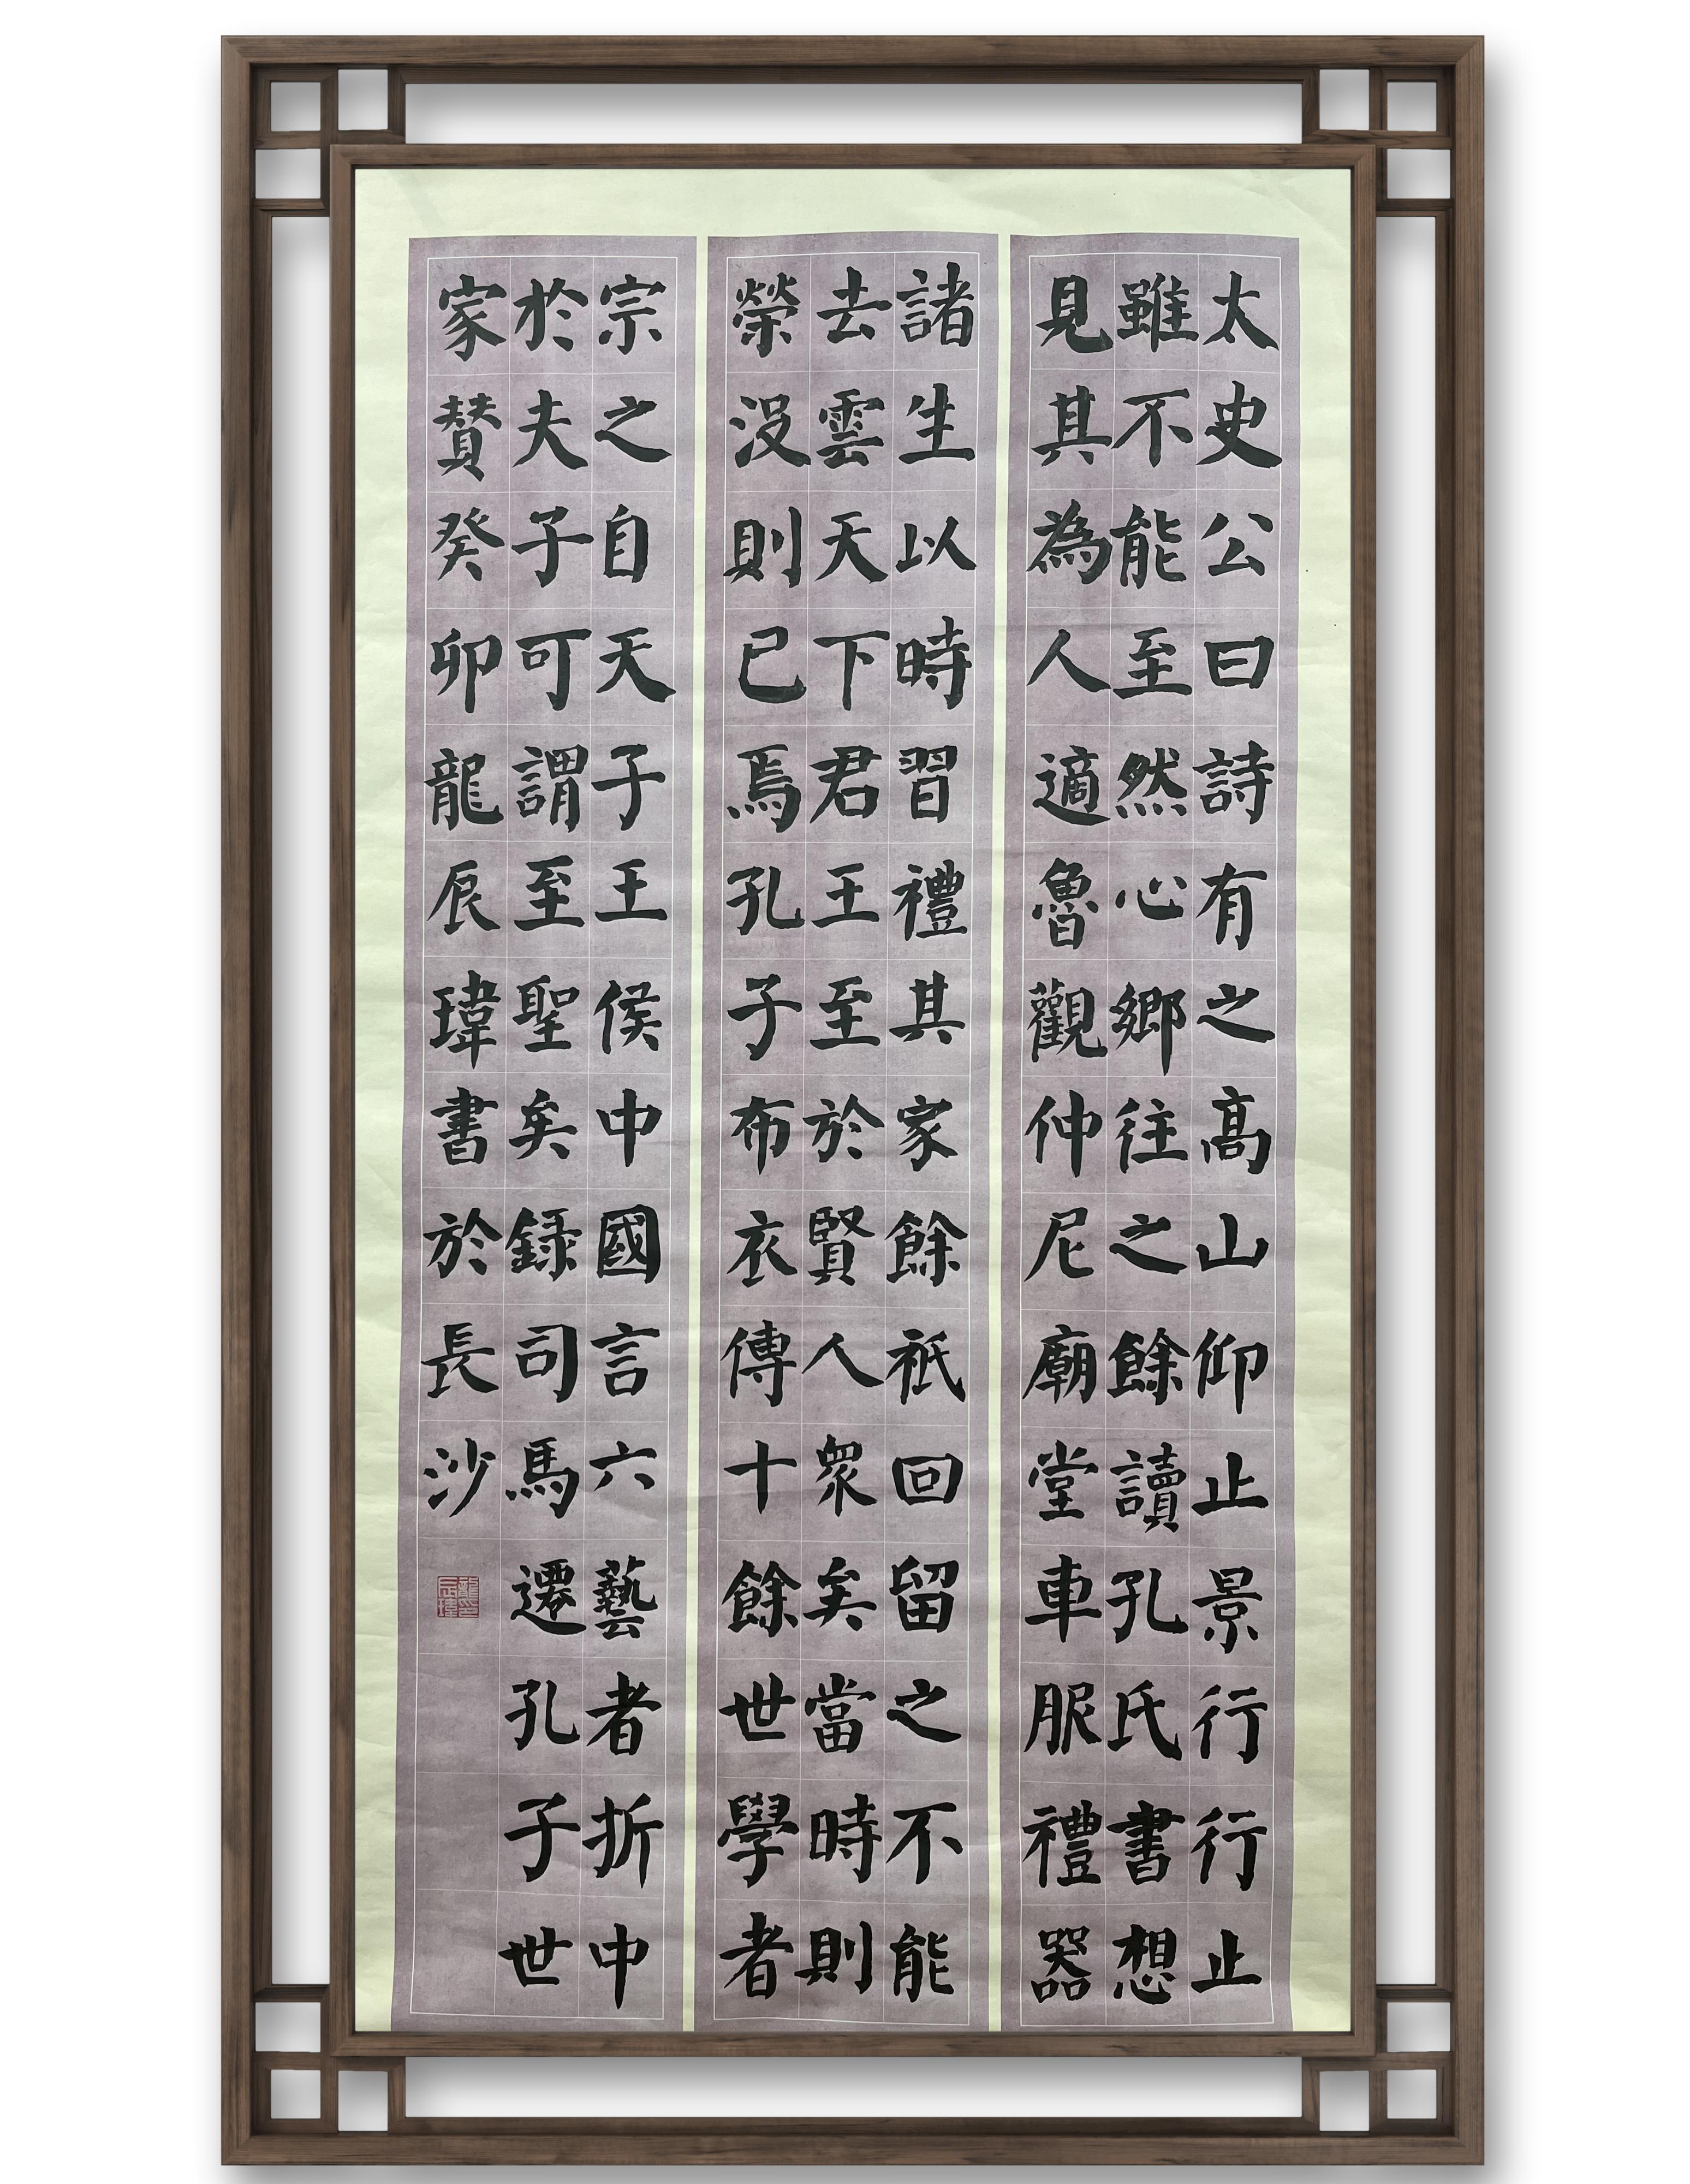 太史公曰詩有之高山仰止景行行止
雖不能至然心鄉往之餘讀孔氏書想
見其為人適魯觀仲尼廟堂車服禮器
諸生以時習禮其家餘祇回留之不能
去雲天下君王至於賢人衆矣當時則
榮沒則已焉孔子布衣傳十餘世學者
宗之自天子王侯中國言六藝者折中
於夫子可謂至聖矣録司馬遷孔子世
家贊癸卯龍辰瑋書於長沙